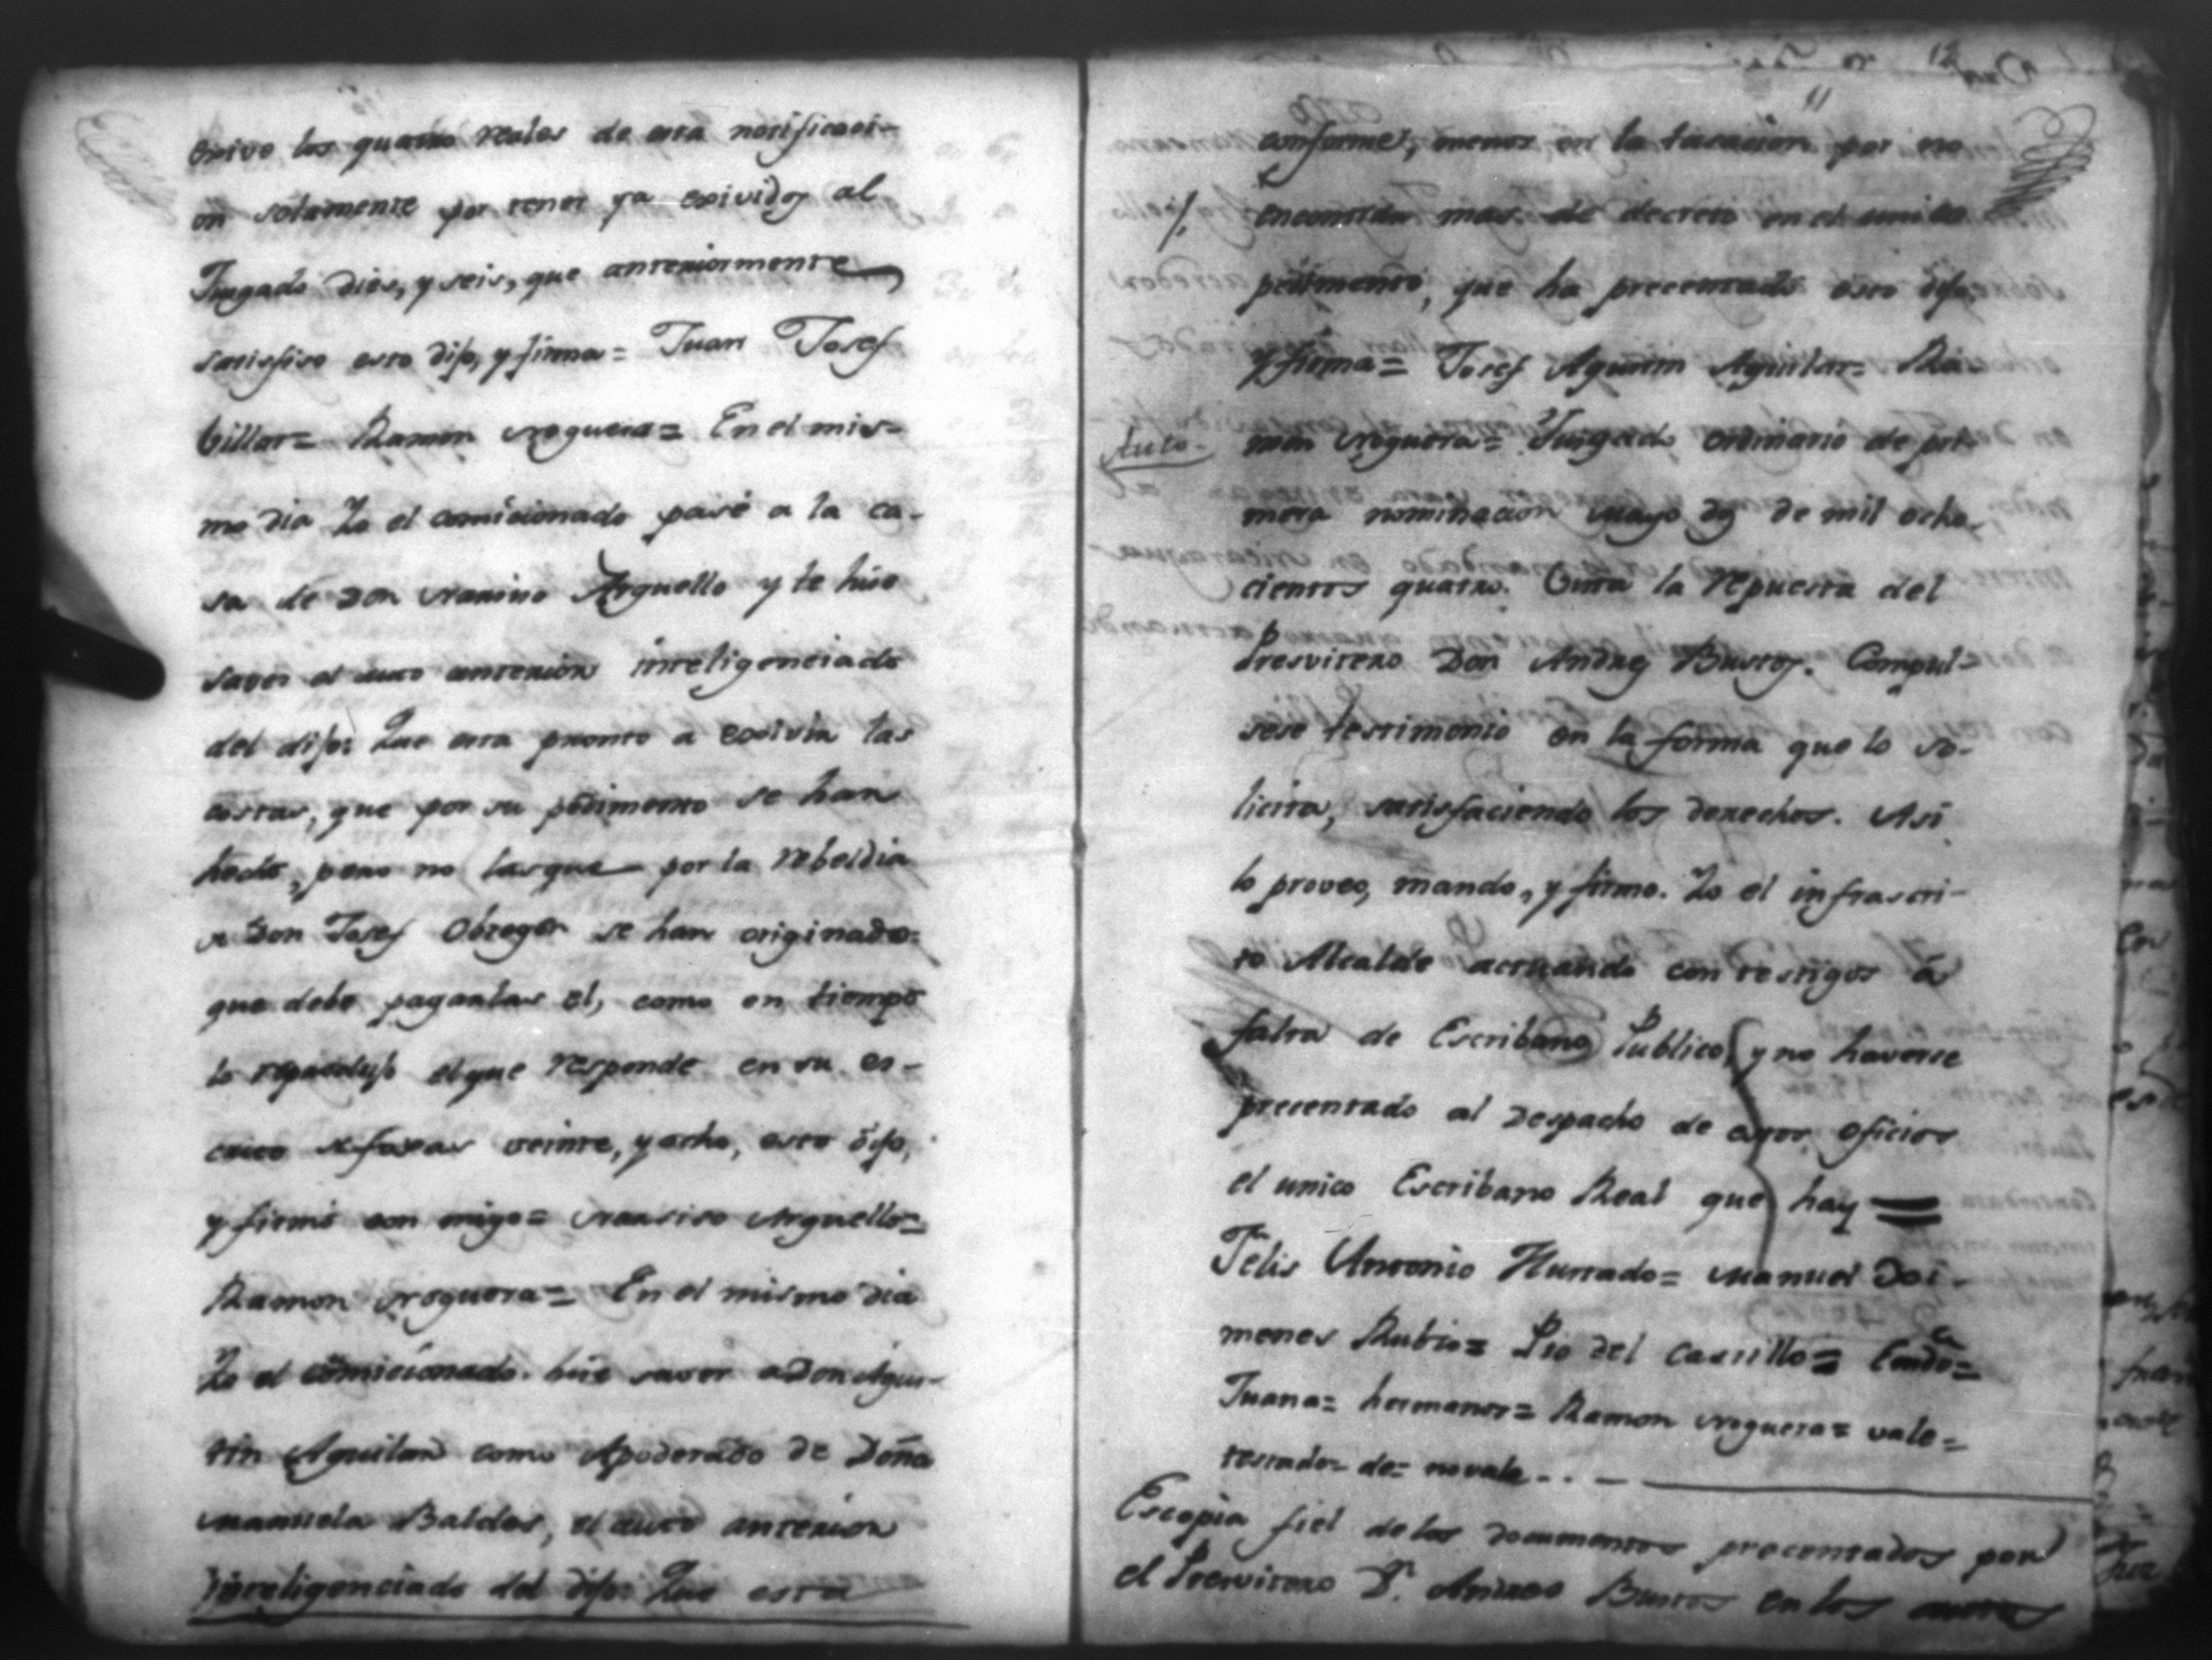 exivo los quatro reales de esta notificaci-
on solamente por tener ya exividos al
Jusgado dies, y seis, que anteriormente
satisfiso esto dijo, y firma= Juan Josef
Villar= Ramon Noguera= En el mis=
mo dia Yo el comicionado pasé a la ca-
sa de Don Narciso Arguello y le hise
saver el auto anterior inteligenciado
del dijo: Que esta pronto a exivir las
costas, que por su pedimento se han
hecho, pero no las que por la rebeldia
de Don Josef Obregon se han originado:
que debe pagarlas el, como en tiempo
lo el que responde en su es-
crito de foxas veinte, y ocho, esto dijo,
y firmó con migo= Narciso Arguello=
Ramon Noguera= En el mismo dia
Yo el comicionado hise saver a Don Agus-
tin Aguilar como Apoderado de Doña
Manuela Baldes, el auto anterior
inteligenciado del dijo: Que esta
11
conforme, menos en la tasacion por no
encontrar mas de decreto en el unico
pedimento, que ha precentado esto dijo,
y firma= Josef Agustin Aguilar= Ra-
Auto-
mon Noguera= Jusgado ordinario de pri-
mera nominacion Mayo dos de mil ocho-
cientos quatro. Vista la repuesta del
Presvitero Don Andres Bustos. Compul=
sese testimonio en la forma que lo so-
licita, satisfaciendo los derechos. Asi
lo proveo, mando, y firmo. Yo el infrascri-
to Alcalde actuando con testigos á
falta de Escribano Publico, y no haverse
precentado al Despacho de estos oficios
el unico Escribano Real que hay =
Felis Antonio Hurtado= Manuel Xi-
menes Rubio= Pio del Castillo= Emdo=
Juana= hermanos= Ramon Noguera= vale=
testado= de= no vale - . -
Es copia fiel de los documentos precentados por
el Presvitero Dn. Andres Bustos en los autos